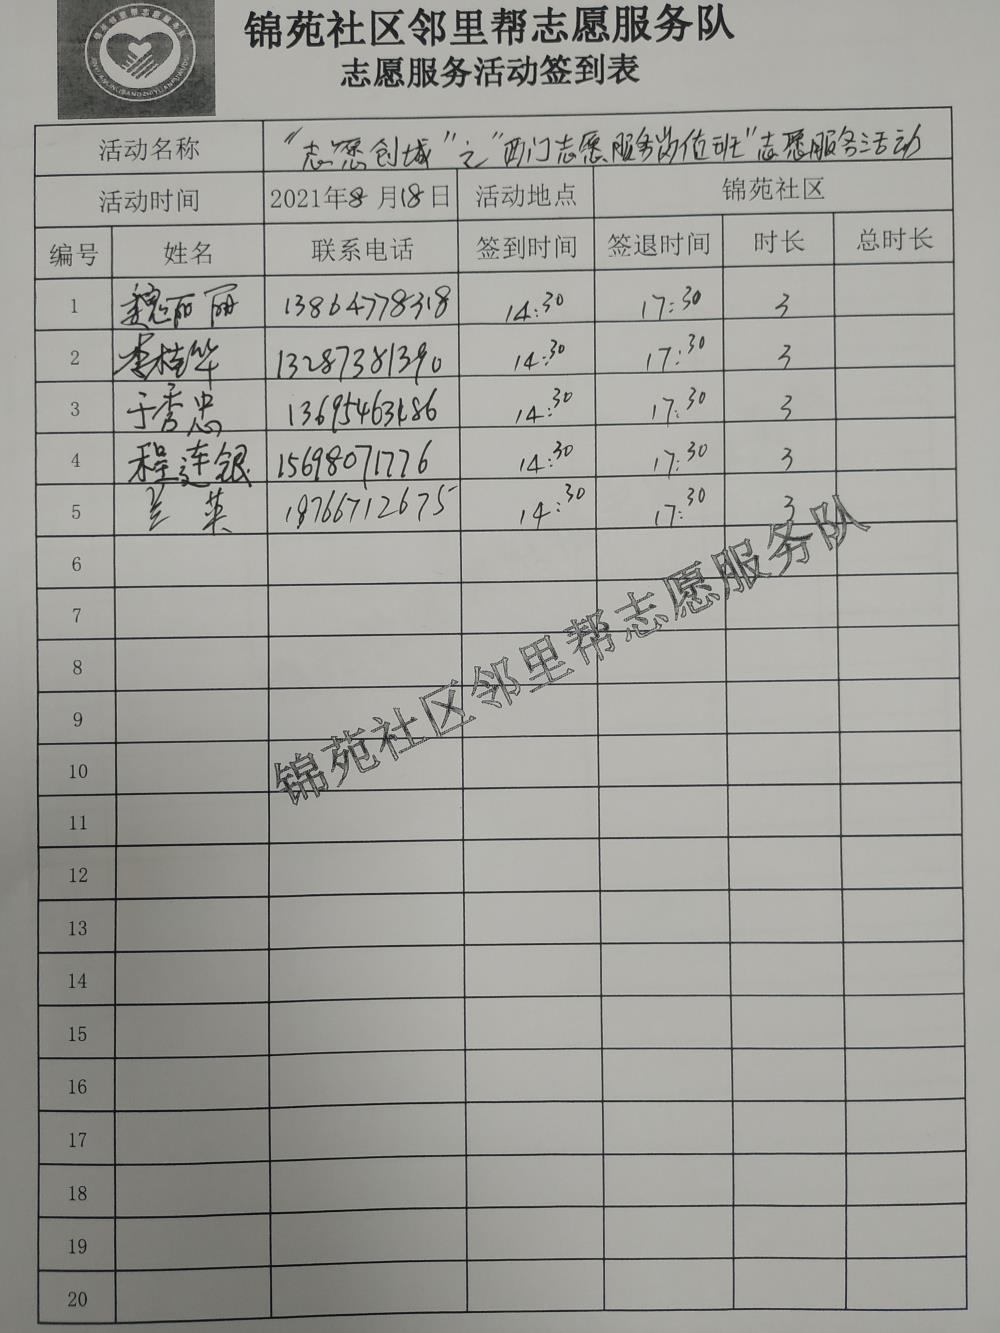 锦苑社区邻里帮志愿服务队
志愿服务活动签到表
活动名称 “志愿创城”之“西门志愿服务岗位班”志愿服务活动
活动时间 2021年8月18日 活动地点 锦苑社区
编号 姓名 联系电话 签到时间 签退时间 时长 总时长
1 魏丽丽 13864778318 14:30 17:30 3
2 李桂华 13287381390 14:30 17:30 3
3 于秀忠 14:30 17:30 3
4 程连银 15698071776 14:30 17:30 3
5 兰英 18766712675 14:30 17:30 3
6
7
8
9
10
11
12
13
14
15
16
17
18
19
20
锦苑社区邻里帮志愿服务队